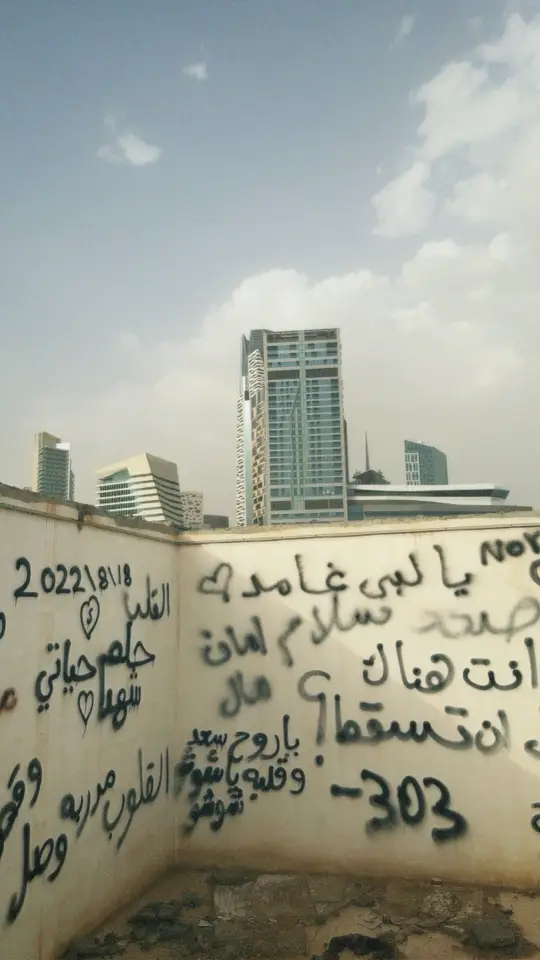 2022\8\18
القلب
حلم حياتي
شهد
القلوب مدربه
وصل
NOR
يا لبى غامد
سلام
امان
مال
انت هناك
ان تسقط؟!
ياروح سعد
وقلبه ياشوق
شوشو
-303